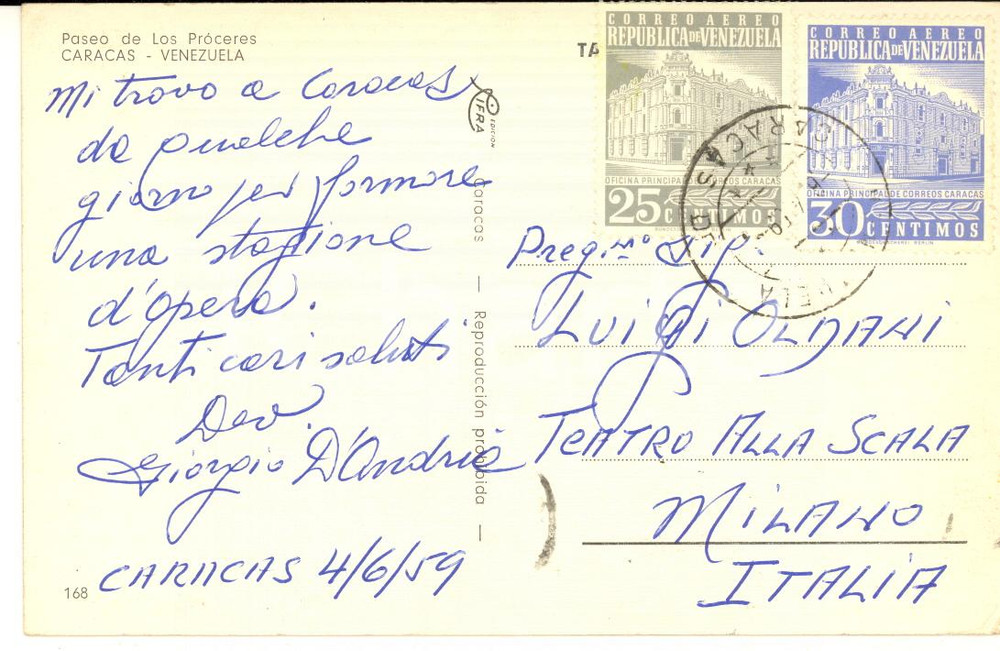 Paseo de Los Próceres
CARACAS - VENEZUELA
Mi trovo a Caracas
da qualche
giorno per formare
una stagione
d'opera.
Tanti cari saluti
Dev.
Giorgio D'Andria
CARACAS 4/6/59
168
CIFRA
EDICION
Caracas — Reproducción prohibida —
TA
CORREO AEREO
REPUBLICA DE VENEZUELA
OFICINA PRINCIPAL DE CORREOS CARACAS
25 CENTIMOS
CORREO AEREO
REPUBLICA DE VENEZUELA
OFICINA PRINCIPAL DE CORREOS CARACAS
30 CENTIMOS
CARACAS
Preg.mo Sig.
LUIGI OLDANI
TEATRO ALLA SCALA
MILANO
ITALIA